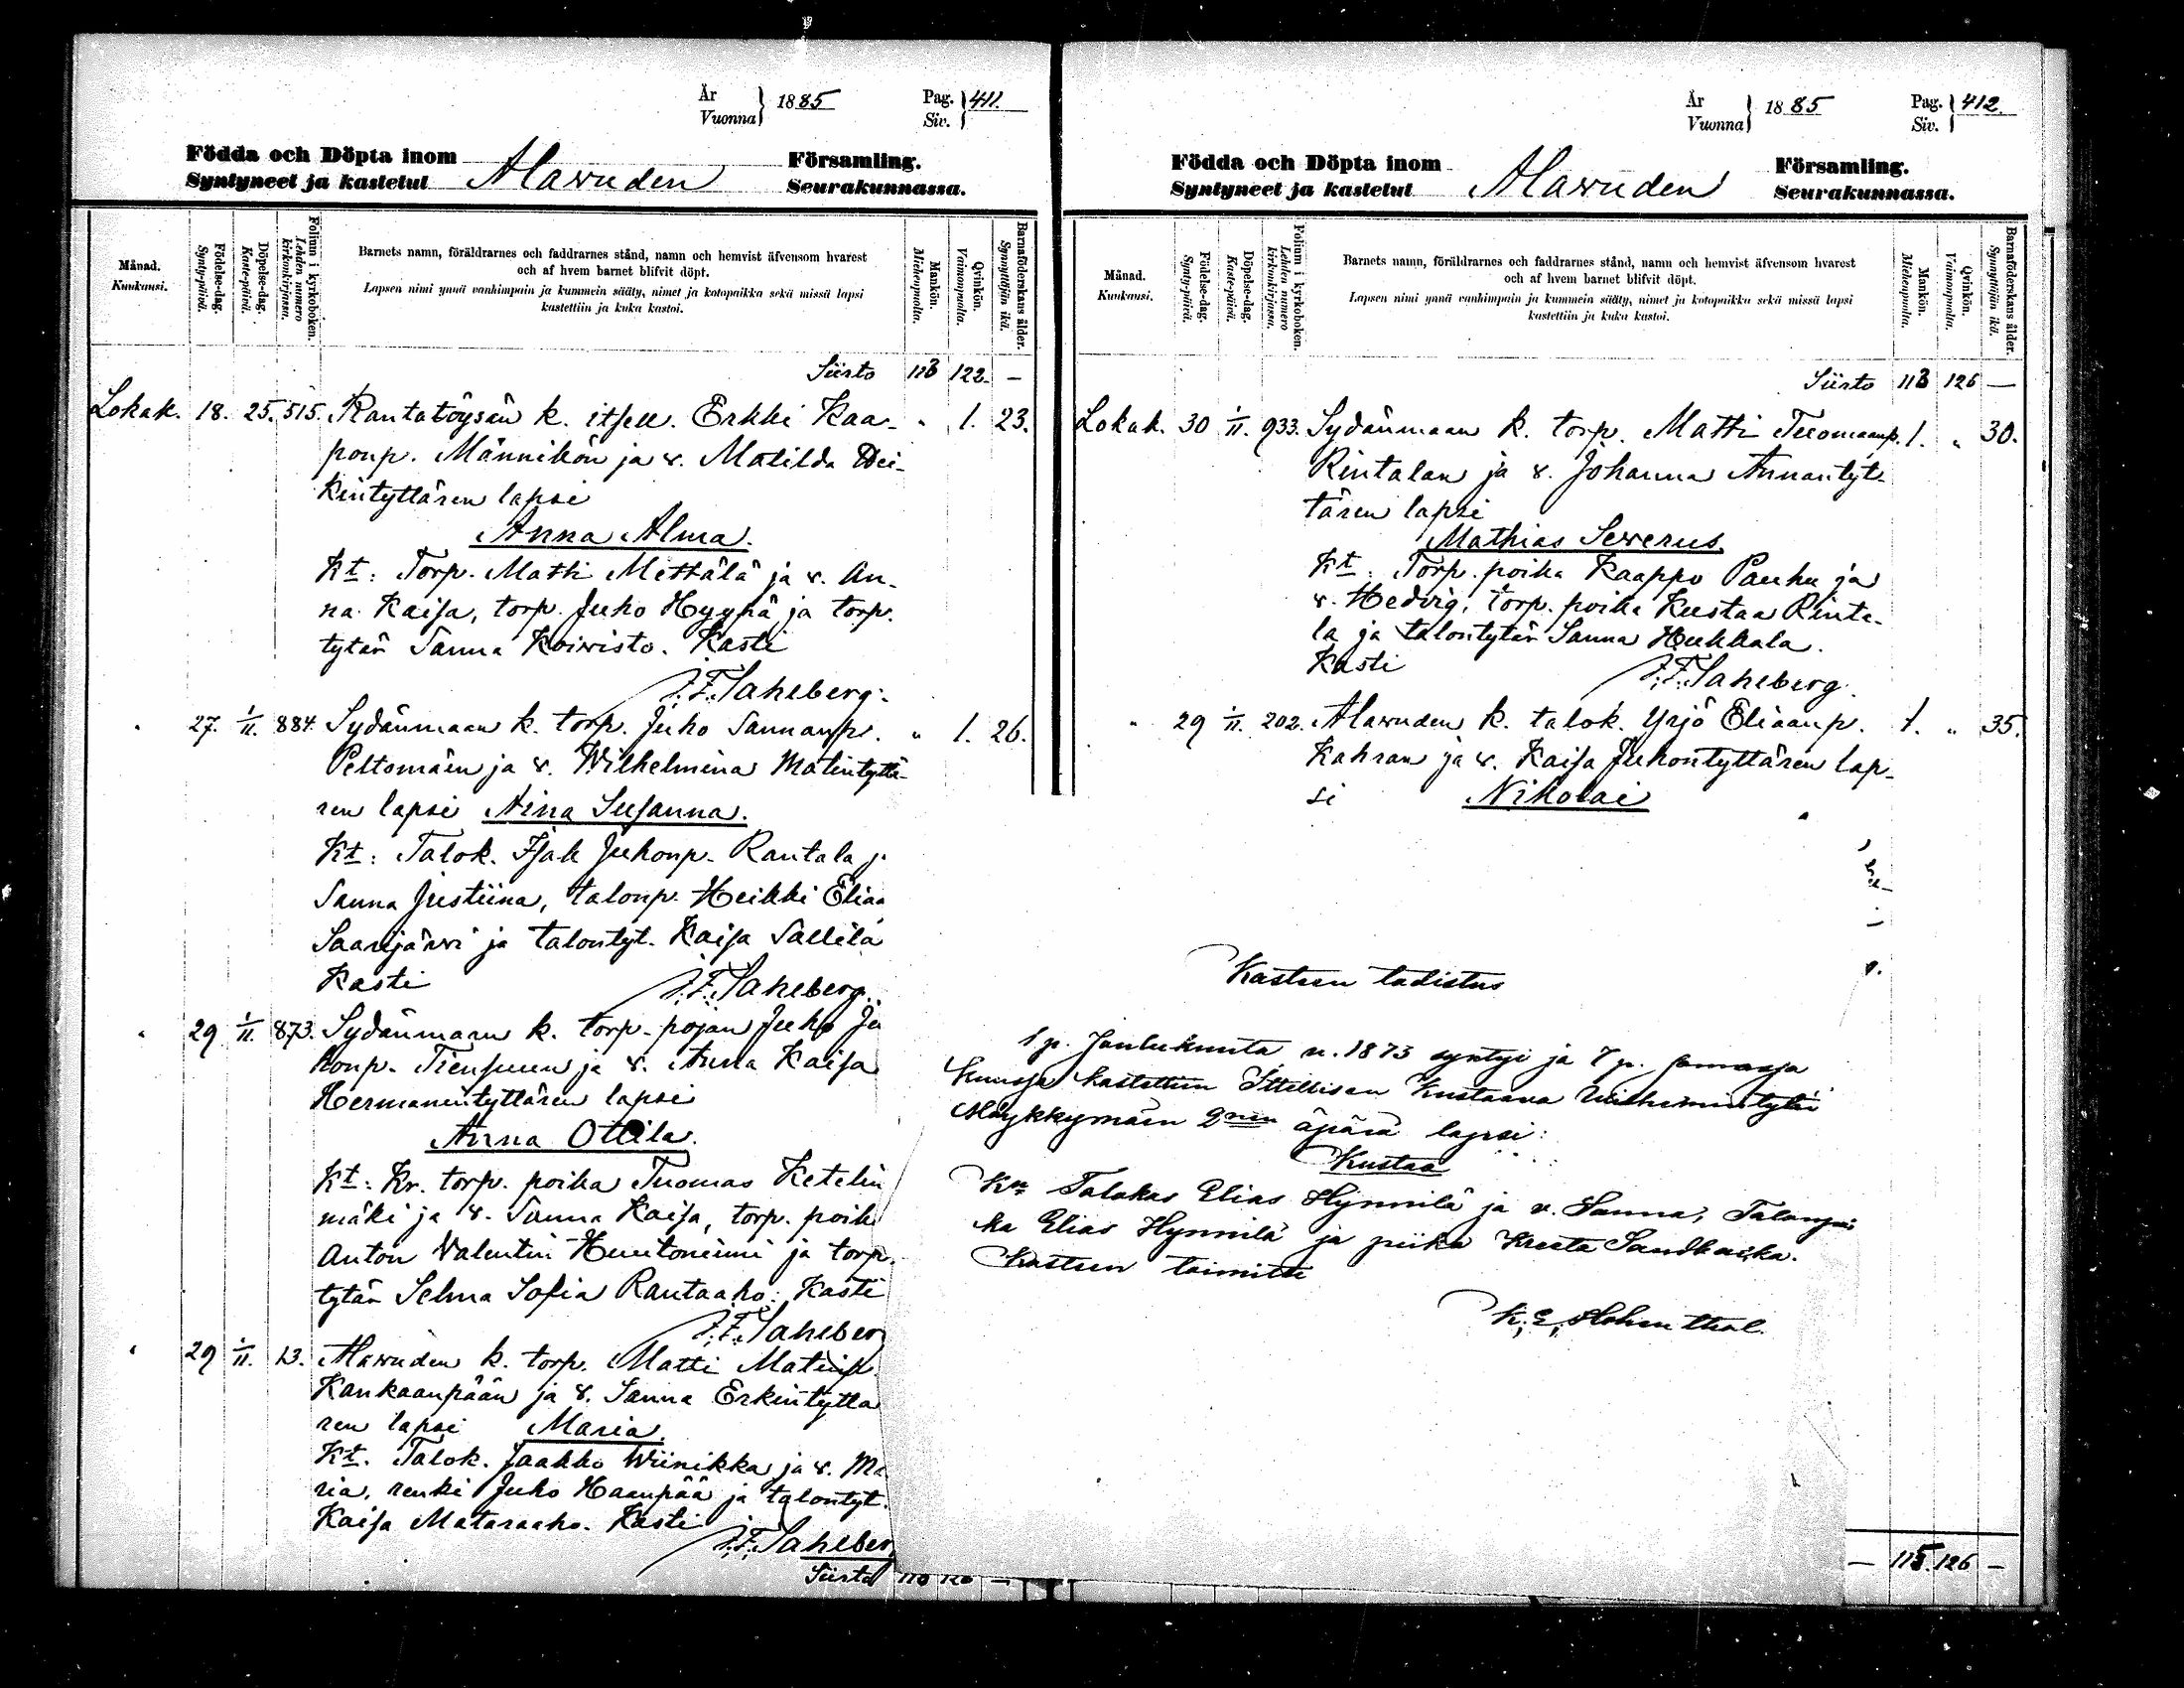 År
Vuonna } 1885 Pag.
Siv. } 411.
Födda och Döpta inom Alawuden Församling.
Syntyneet ja kastetut Seurakunnassa.
Månad.
Kuukausi.
Födelse-dag.
Synty-päivä.
Döpelse-dag.
Kaste-päivä.
Folium i kyrkoboken.
Lehden numero kirkonkirjassa.
Barnets namn, föräldrarnes och faddrarnes stånd, namn och hemvist äfvensom hvarest
och af hvem barnet blifvit döpt.
Lapsen nimi ynnä vanhimpain ja kummein sääty, nimet ja kotopaikka sekä missä lapsi
kastettiin ja kuka kastoi.
Mankön.
Miehenpuolta.
Qvinkön.
Vaimonpuolta.
Barnaföderskans ålder.
Synnyttäjän ikä.
Siirto 113 122. —
Lokak. 18. 25. 515. Rantatöysän k. itsell. Erkki Kaa- „ 1. 23.
ponp. Männikön ja v. Matilda Hei-
kintyttären lapsi
Anna Alma.
Kt: Torp. Matti Mettälä ja v. An-
na Kaisa, torp. Juho Hyypä ja torp.
tytär Sanna Koiwisto. Kasti
J.F. Saheberg.
„ 27. 1/11. 884. Sydänmaan k. torp. Juho Sannanp. „ 1. 26.
Peltomäen ja v. Wilhelmina Matintyttä-
ren lapsi Aina Susanna.
Kt: Talok. Isak Juhonp. Rantala j
Sanna Justiina, talonp. Heikki Eliaa
Saarijärwi ja talontyt. Kaisa Sallila
Kasti J.F. Saheberg.
„ 29 1/11. 873. Sydänmaan k. torp. pojan Juho Ju
honp. Tiensuun ja v. Anna Kaisa
Hermanintyttären lapsi
Anna Ottila.
Kt: Kr. torp. poika Tuomas Ketelin
mäki ja v. Sanna Kaisa, torp. poik
Anton Valentin Huutoniemi ja torp.
tytär Selma Sofia Rantaaho. Kasti
J.F. Saheber
„ 29 1/11. 13. Alawuden k. torp. Matti Matinp.
Kankaanpään ja v. Sanna Erkintyttä
ren lapsi Maria.
Kt. Talok. Jaakko Wiinikka ja v. Ma
ria, renki Juho Haanpää ja talontyt.
Kaisa Mataraaho. Kasti
J.F. Saheber
Siirto
År
Vuonna } 1885 Pag.
Siv. } 412.
Födda och Döpta inom Alawuden Församling.
Syntyneet ja kastetut Seurakunnassa.
Månad.
Kuukausi.
Födelse-dag.
Synty-päivä.
Döpelse-dag.
Kaste-päivä.
Folium i kyrkoboken.
Lehden numero kirkonkirjassa.
Barnets namn, föräldrarnes och faddrarnes stånd, namn och hemvist äfvensom hvarest
och af hvem barnet blifvit döpt.
Lapsen nimi ynnä vanhimpain ja kummein sääty, nimet ja kotopaikka sekä missä lapsi
kastettiin ja kuka kastoi.
Mankön.
Miehenpuolta.
Qvinkön.
Vaimonpuolta.
Barnaföderskans ålder.
Synnyttäjän ikä.
Siirto 113 126 —
Lokak. 30 1/11. 933. Sydänmaan k. torp. Matti Tuomaanp. 1. „ 30.
Rintalan ja v. Johanna Annantyt-
tären lapsi
Mathias Sewerus.
Kt: Torp. poika Kaappo Pauhu ja
v. Hedvig, torp. poika Kustaa Rinta-
la ja talontytär Sanna Hukkala.
Kasti J.F. Saheberg.
„ 29 1/11. 202. Alawuden k. talok. Yrjö Eliaanp. 1. „ 35.
Kahran ja v. Kaisa Juhontyttären lap-
si Nikolai
Kasteen todistus
1 p. Joulukuuta v. 1873 syntyi ja 7 p. samassa
kuussa kastettiin Ittellisen Kustaava Wilhelmintytär
Mäykkymäen 2nen äpärä lapsi:
Kustaa
Km Talokas Elias Hynnilä ja v. Sanna, Talonpoi
ka Elias Hynnilä ja piika Kreeta Sandbacka.
Kasteen toimitti
K. E. Hohenthal.
— 115. 126 —